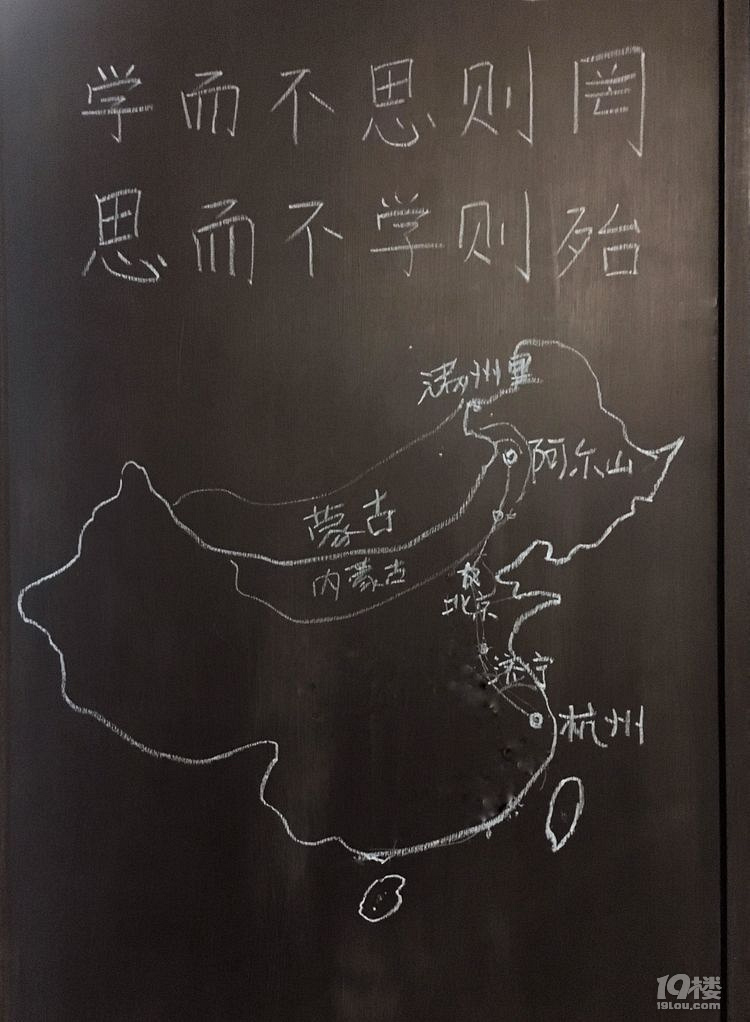 学而不思则罔
思而不学则殆
满州里
阿尔山
蒙古
内蒙古
北京
济宁
杭州
19楼
19lou.com